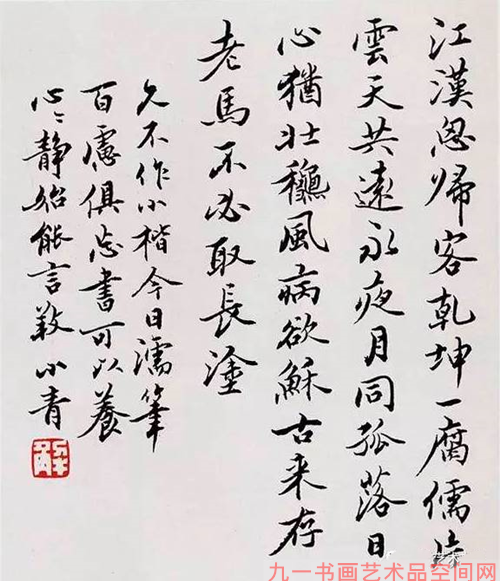 江漢思歸客乾坤一腐儒片
雲天共遠永夜月同孤落日
心猶壯穐風病欲穌古来存
老馬不必取長塗
久不作小楷今日濡筆
百慮俱忘書可以養
心〻静始能言 小青
九一书画艺术品空间网